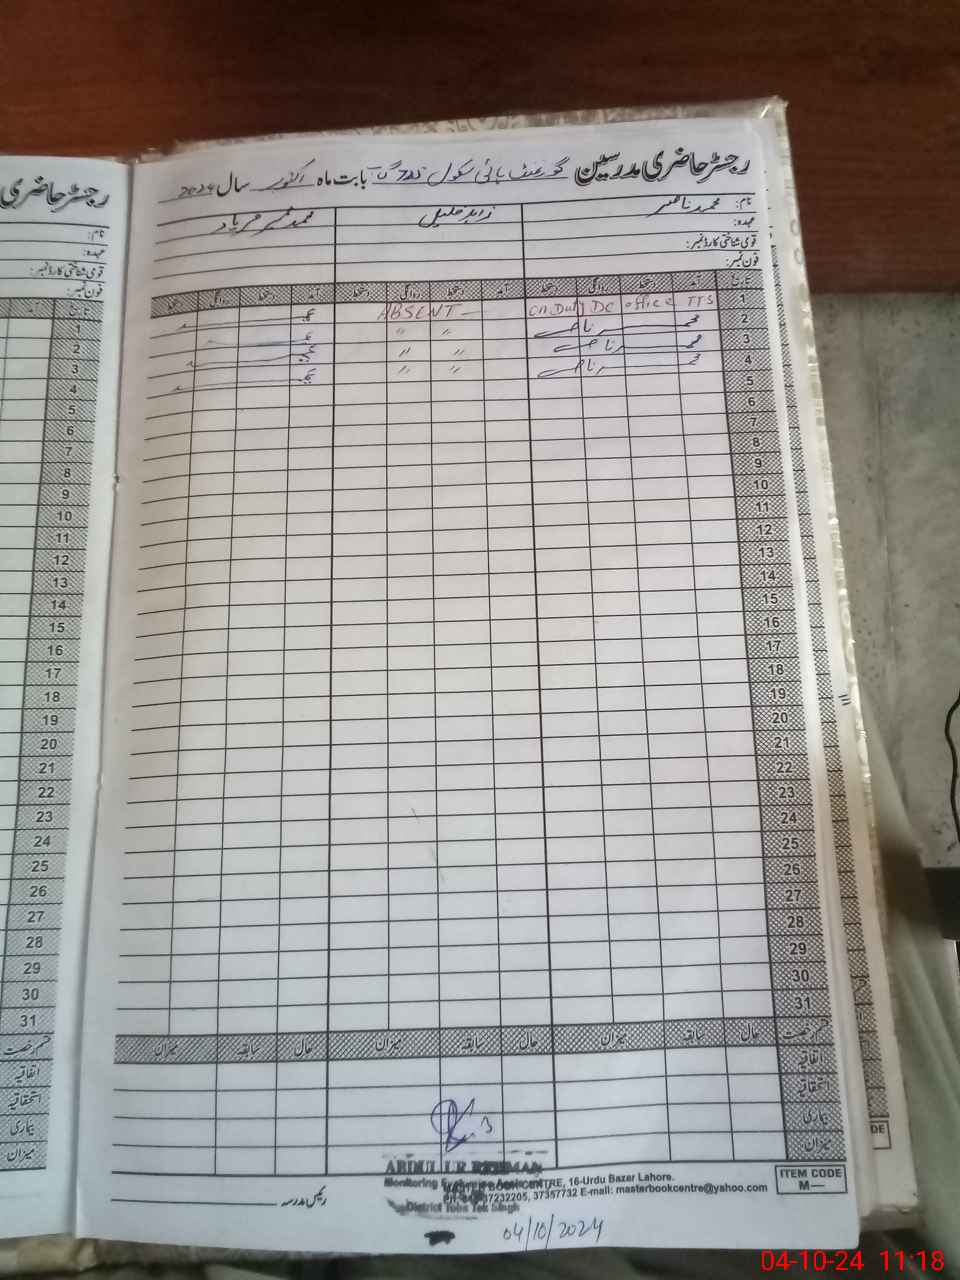 رجسٹر حاضری مدرسین گورنمنٹ ہائی سکول بابت ماہ اکتوبر سال 2024
نام: محمد ناصر
زاہد خلیل
محمد
عہدہ:
قومی شناختی کارڈ نمبر:
فون نمبر:
تاریخ آمد دستخط روانگی دستخط آمد دستخط روانگی دستخط آمد دستخط روانگی دستخط
1 On Duty DC office TTS ABSENT
2 محمد ناصر " "
3 محمد ناصر " "
4 محمد ناصر " "
5
6
7
8
9
10
11
12
13
14
15
16
17
18
19
20
21
22
23
24
25
26
27
28
29
30
31
قسم رخصت حال سابقہ میزان حال سابقہ میزان حال سابقہ میزان
اتفاقیہ
استحقاقیہ
بیماری
میزان
رئیس مدرسہ
ABDUL UR REHMAN
Monitoring
MASTER BOOK CENTRE, 16-Urdu Bazar Lahore.
37232205, 37357732 E-mail: masterbookcentre@yahoo.com
District Toba Tek Singh
ITEM CODE
M—
04/10/2024
رجسٹر حاضری
نام:
عہدہ:
قومی شناختی کارڈ نمبر:
فون نمبر:
تاریخ آمد
1
2
3
4
5
6
7
8
9
10
11
12
13
14
15
16
17
18
19
20
21
22
23
24
25
26
27
28
29
30
31
قسم رخصت
اتفاقیہ
استحقاقیہ
بیماری
میزان
DE
04-10-24 11:18